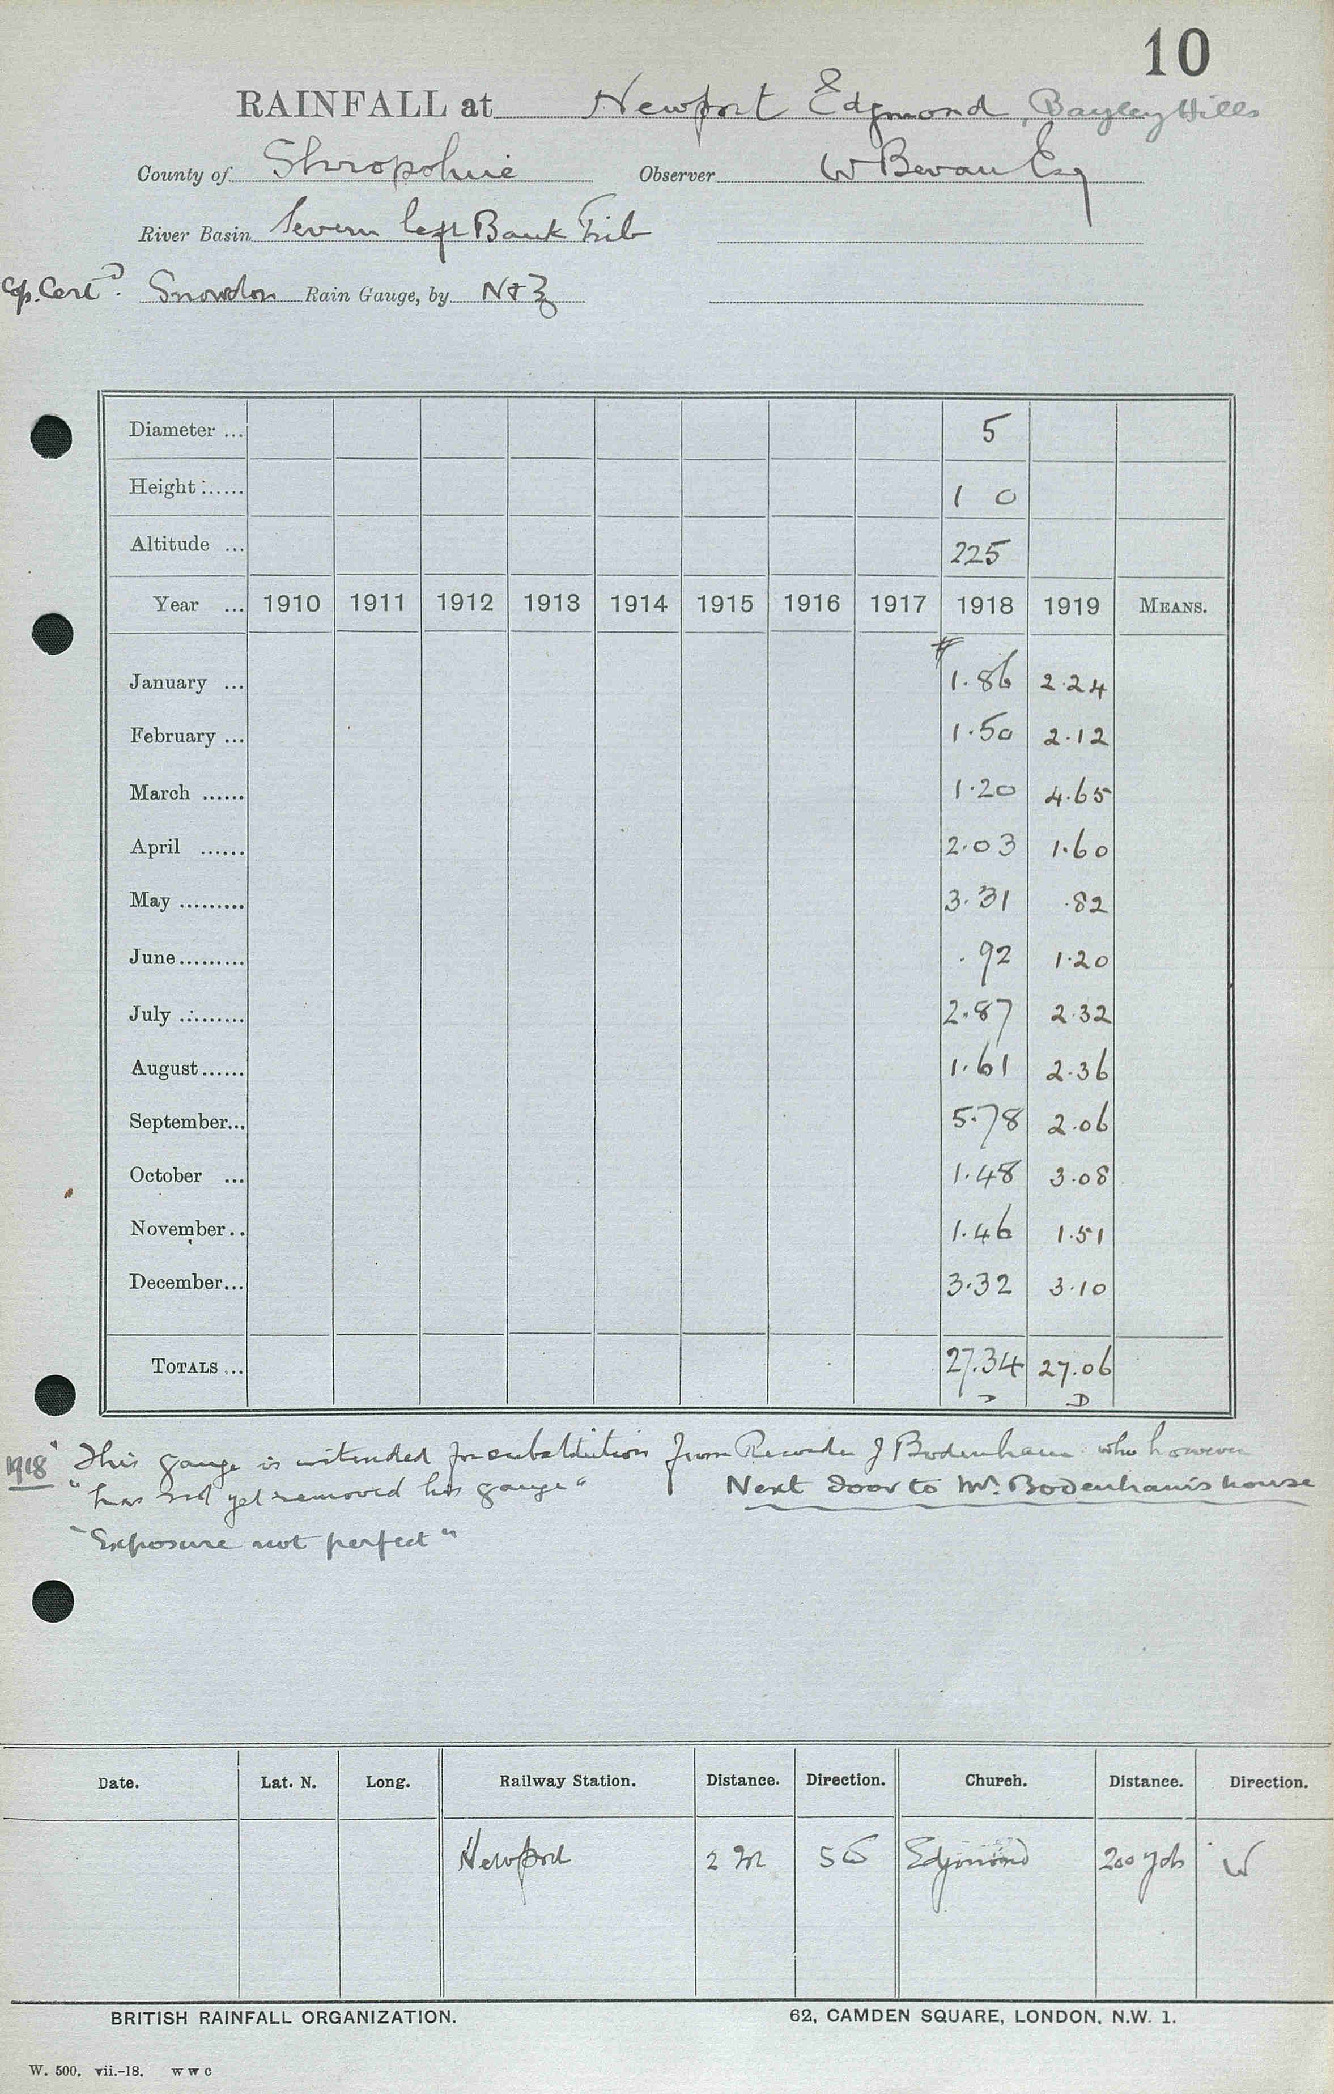 10
RAINFALL at Newport Edgmond, Bayley Hills
County of Shropshire Observer W Bevan Esq
River Basin Severn left Bank Trib
Cop. Certd. Snowdon Rain Gauge, by N & Z
Diameter ... 5
Height ...... 1 0
Altitude ... 225
Year ... 1910 1911 1912 1913 1914 1915 1916 1917 1918 1919 MEANS.
January ... 1.86 2.24
February ... 1.50 2.12
March ...... 1.20 4.65
April ...... 2.03 1.60
May ......... 3.31 .82
June......... .92 1.20
July ......... 2.87 2.32
August...... 1.61 2.36
September... 5.78 2.06
October ... 1.48 3.08
November.. 1.46 1.51
December... 3.32 3.10
TOTALS ... 27.34 27.06
D D
1918 "This gauge is intended for substitution from Recorder J Bodenham who however
"has not yet removed his gauge" Next door to Mr. Bodenham's house
"Exposure not perfect"
Date. Lat. N. Long. Railway Station. Distance. Direction. Church. Distance. Direction.
Newport 2 m SE Edgmond 200 yds W
BRITISH RAINFALL ORGANIZATION. 62, CAMDEN SQUARE, LONDON, N.W. 1.
W. 500. vii.-18. W W C